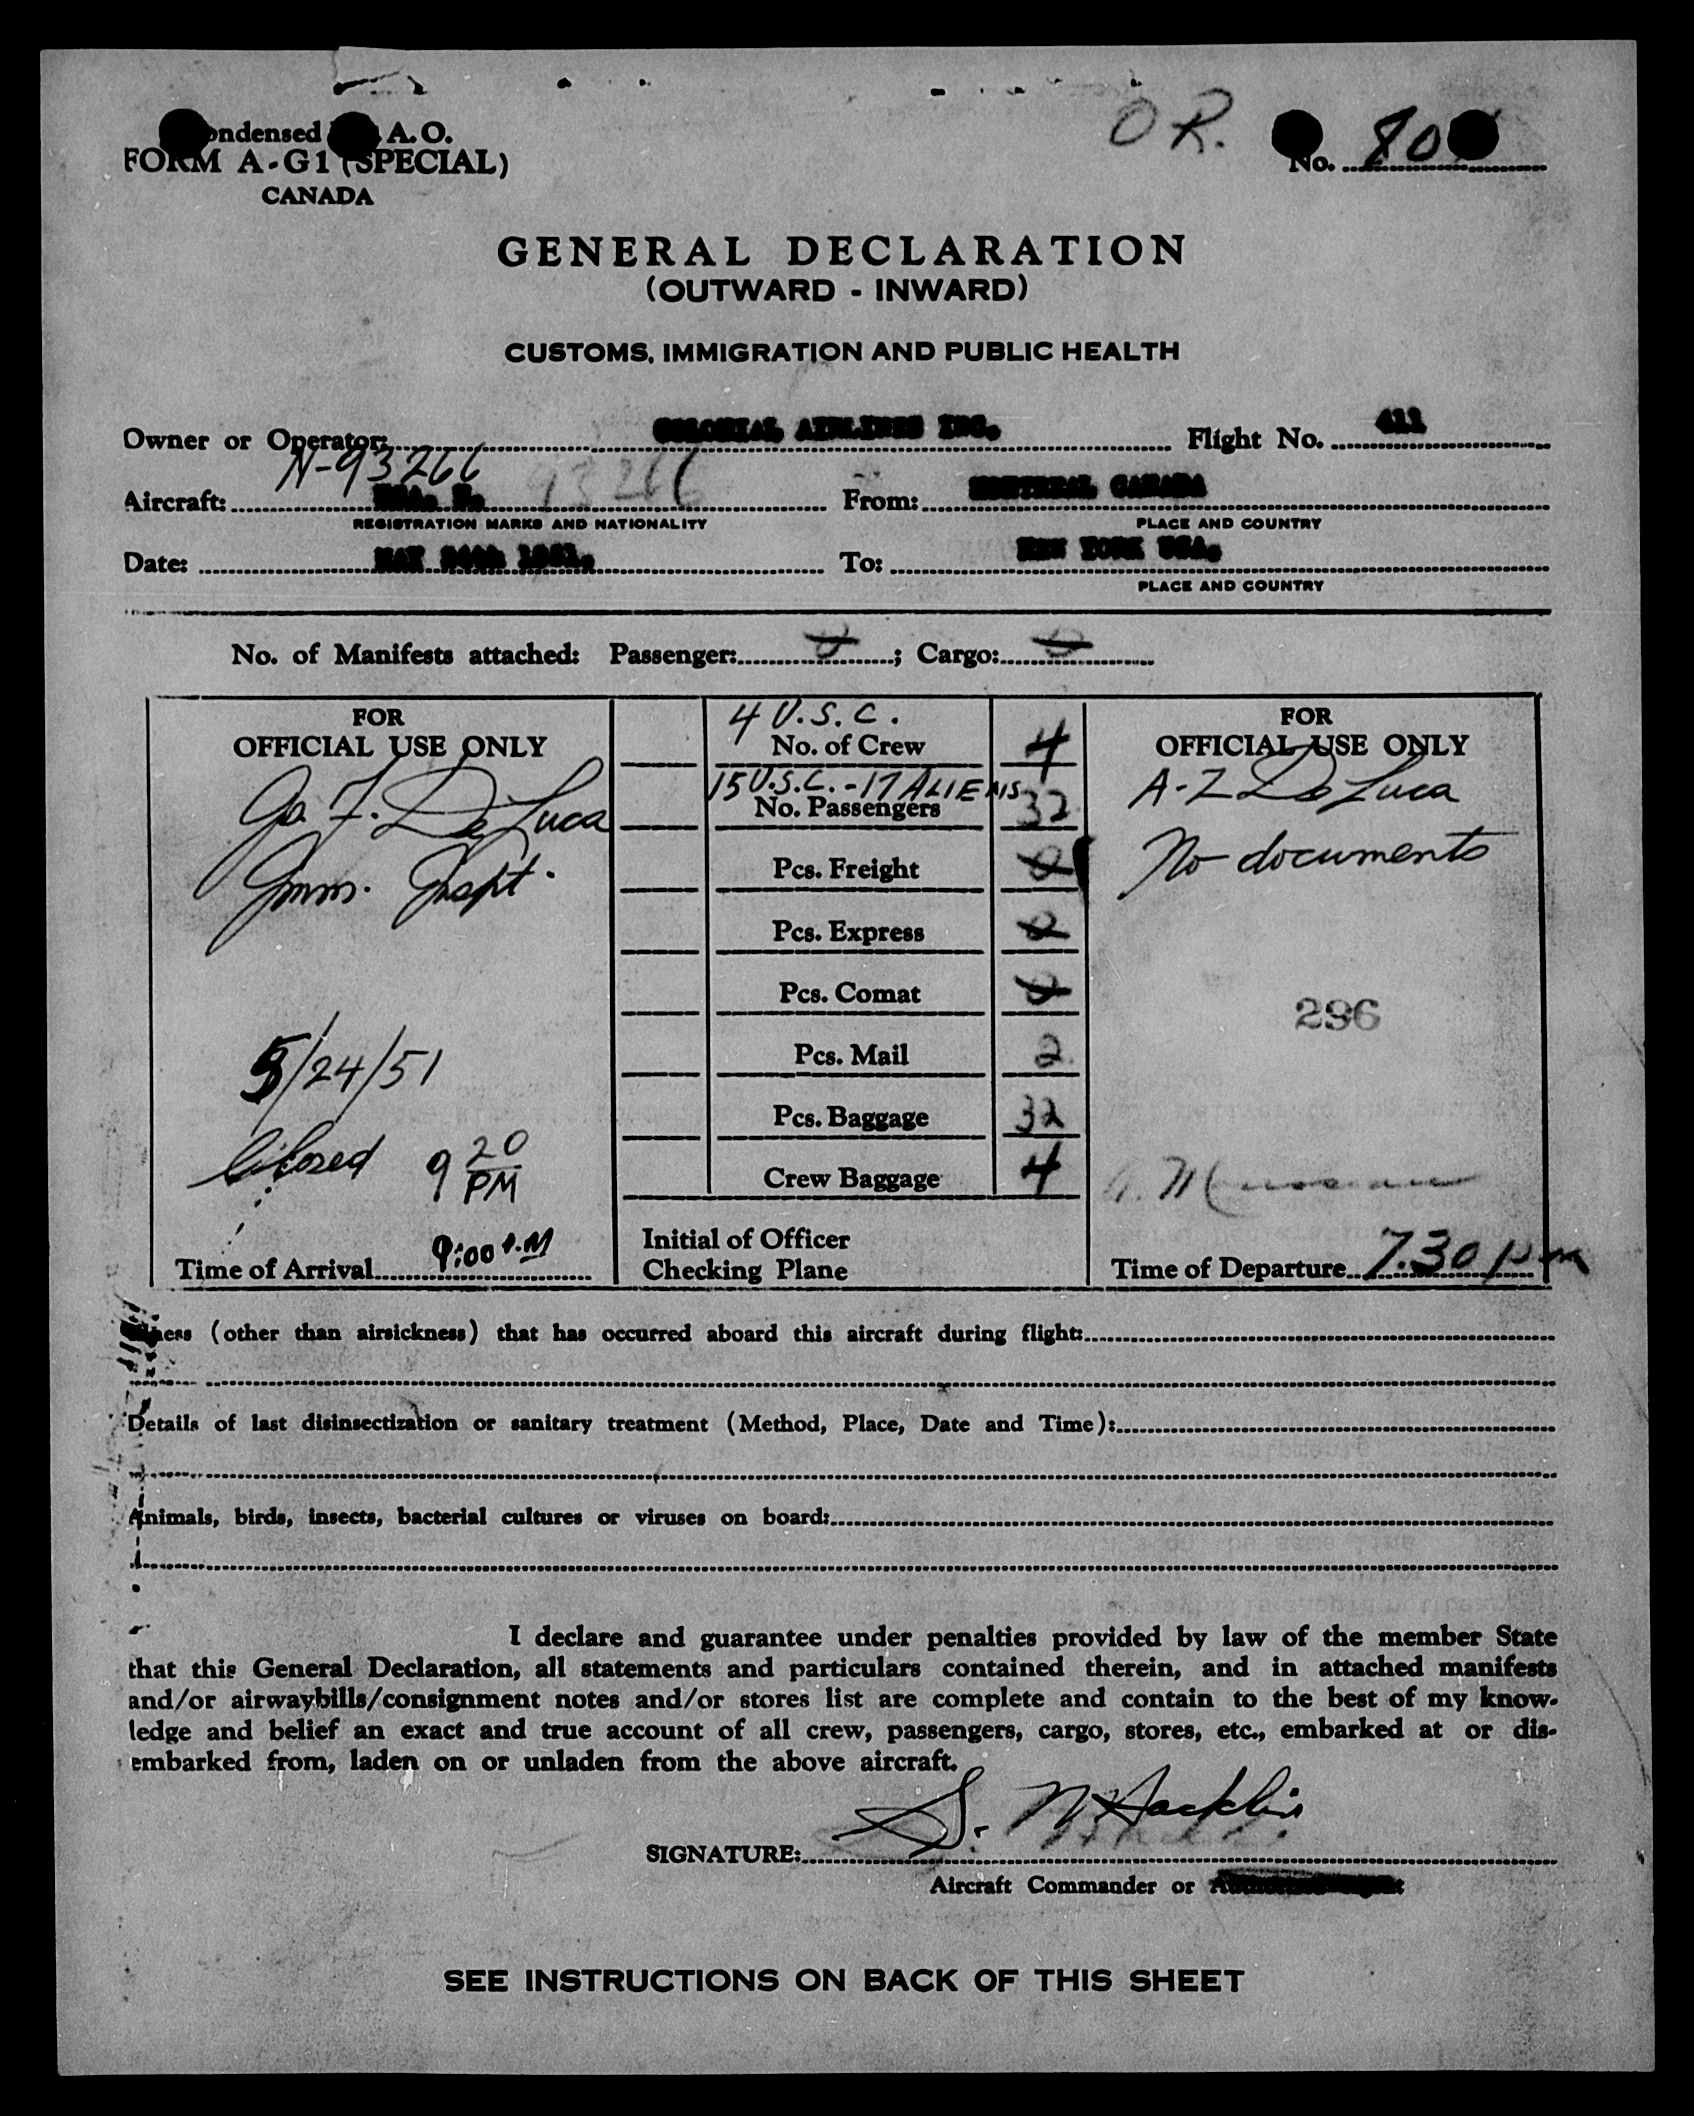 ondensed A. O.
FORM A-G1 (SPECIAL)
CANADA
O R.
No. 80
GENERAL DECLARATION
(OUTWARD - INWARD)
CUSTOMS, IMMIGRATION AND PUBLIC HEALTH
Owner or Operator: COLONIAL AIRLINES INC. Flight No. 411
N-93266
Aircraft: USA. N. 93266 From: MONTREAL CANADA
REGISTRATION MARKS AND NATIONALITY PLACE AND COUNTRY
Date: MAY 24th 1951. To: NEW YORK USA.
PLACE AND COUNTRY
No. of Manifests attached: Passenger: 0; Cargo: 0
FOR
OFFICIAL USE ONLY
F. De Luca
Imm. Inspt.
5/24/51
Closed 9 20 PM
Time of Arrival 9:00 P.M
4 U.S.C.
No. of Crew 4
15 U.S.C. - 17 ALIENS
No. Passengers 32
Pcs. Freight 0
Pcs. Express 0
Pcs. Comat 0
Pcs. Mail 2
Pcs. Baggage 32
Crew Baggage 4
Initial of Officer
Checking Plane
FOR
OFFICIAL USE ONLY
A-Z De Luca
No documents
296
Time of Departure 7.30 pm
Illness (other than airsickness) that has occurred aboard this aircraft during flight:
Details of last disinsectization or sanitary treatment (Method, Place, Date and Time):
Animals, birds, insects, bacterial cultures or viruses on board:
I declare and guarantee under penalties provided by law of the member State
that this General Declaration, all statements and particulars contained therein, and in attached manifests
and/or airwaybills/consignment notes and/or stores list are complete and contain to the best of my know-
ledge and belief an exact and true account of all crew, passengers, cargo, stores, etc., embarked at or dis-
embarked from, laden on or unladen from the above aircraft.
SIGNATURE: S. N Hacklin
Aircraft Commander or
SEE INSTRUCTIONS ON BACK OF THIS SHEET